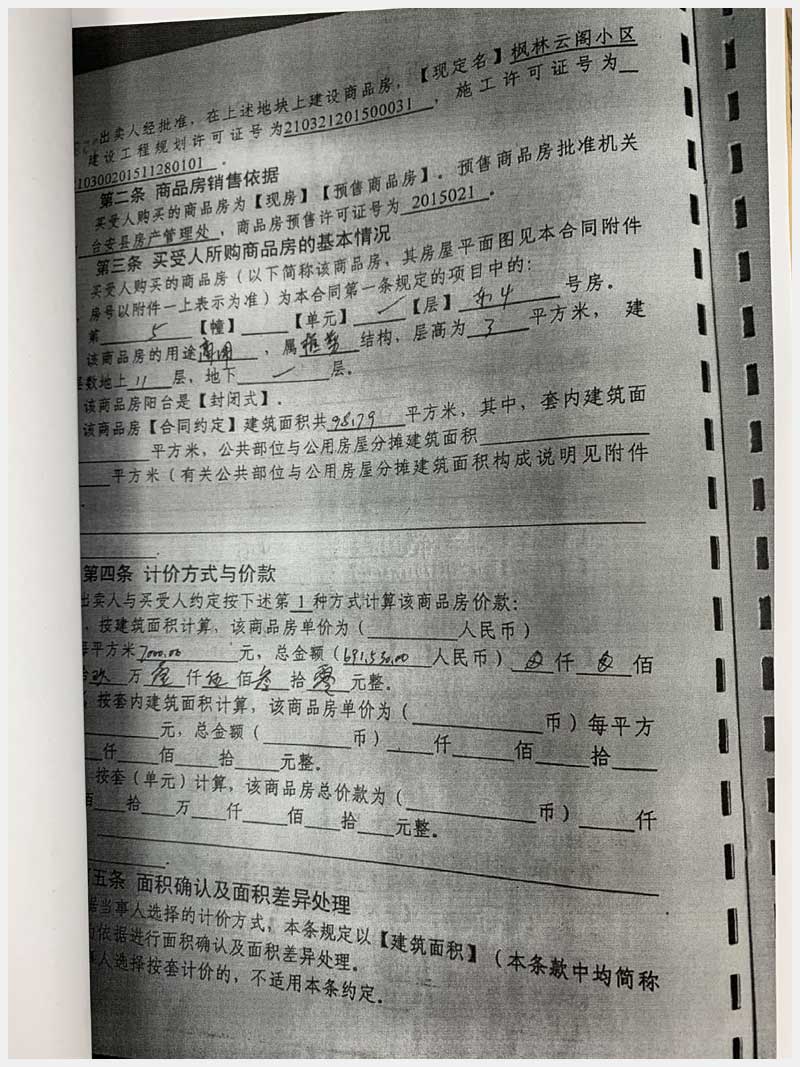 出卖人经批准，在上述地块上建设商品房，【现定名】枫林云阁小区
建设工程规划许可证号为210321201500031，施工许可证号为
10300201511280101。
第二条 商品房销售依据
买受人购买的商品房为【现房】【预售商品房】。预售商品房批准机关
台安县房产管理处，商品房预售许可证号为2015021。
第三条 买受人所购商品房的基本情况
买受人购买的商品房（以下简称该商品房，其房屋平面图见本合同附件
，房号以附件一上表示为准）为本合同第一条规定的项目中的：
第 5 【幢】____【单元】____【层】 东4 号房。
该商品房的用途商用，属框架结构，层高为 3 平方米， 建
层数地上 11 层，地下____层。
该商品房阳台是【封闭式】。
该商品房【合同约定】建筑面积共98.79平方米，其中，套内建筑面
____平方米，公共部位与公用房屋分摊建筑面积____
____平方米（有关公共部位与公用房屋分摊建筑面积构成说明见附件
第四条 计价方式与价款
出卖人与买受人约定按下述第 1 种方式计算该商品房价款：
，按建筑面积计算，该商品房单价为（____人民币）
每平方米7000.00元，总金额（691,530.00人民币）____仟____佰
拾玖万壹仟伍佰叁拾零元整。
按套内建筑面积计算，该商品房单价为（____币）每平方
____元，总金额（____币）____仟____佰____拾____
____仟____佰____拾____元整。
按套（单元）计算，该商品房总价款为（____币）____仟
佰____拾____万____仟____佰____拾____元整。
五条 面积确认及面积差异处理
当事人选择的计价方式，本条规定以【建筑面积】（本条款中均简称
依据进行面积确认及面积差异处理。
人选择按套计价的，不适用本条约定。